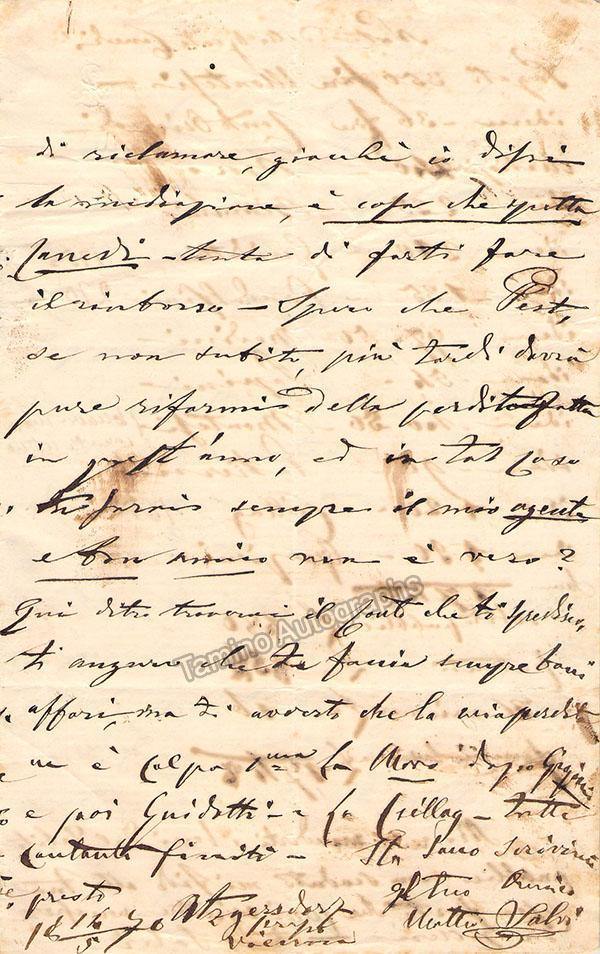 di riclamare, giacchè io dissi
la mediazione, è cosa che spetta
Canedi - tenta di farti fare
il rimborso - Spero che Pest,
se non subito, più tardi dovrà
pure rifarmi della perdita fatta
in quest'anno, ed in tal caso
tu sarai sempre il mio agente
e buon amico non è vero?
Qui dietro troverai il Conto che ti spedisco,
ti auguro che tu faccia sempre buoni
affari, ma ti avverto che la mia perdita
ne è colpa 1ma La Moro dopo
e poi Guidotti - e La Csillag - tutte
Cantanti finiti - Sta Sano Scrivimi
presto gl tuo Amico
16/5 70 Atzgersdorf Matteo Salvi
presso Vienna
Tamino Autographs